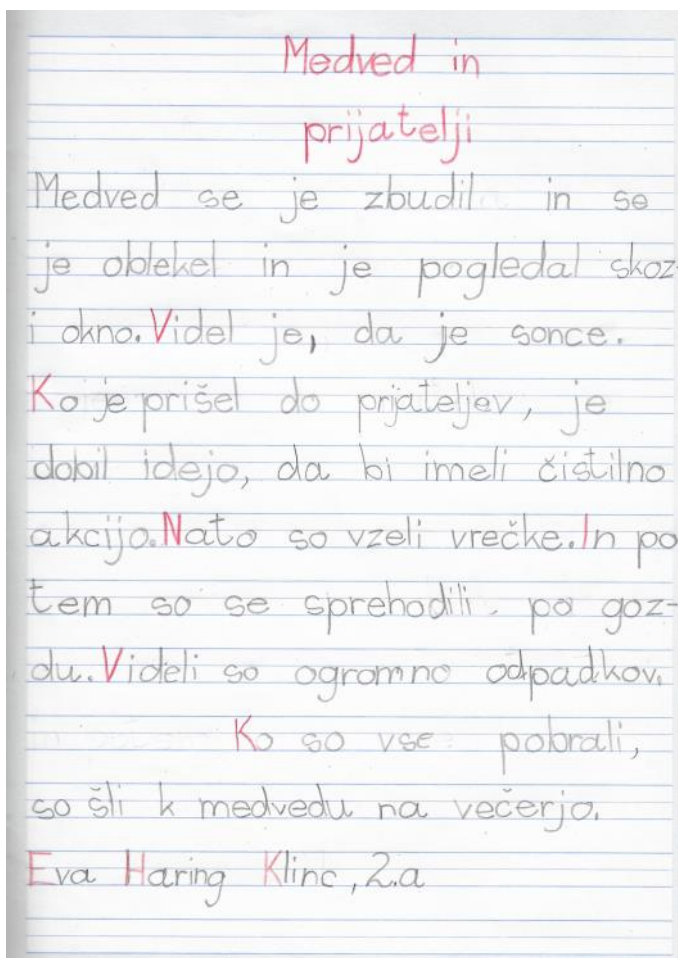 Medved in
prijatelji
Medved se je zbudil in se
je oblekel in je pogledal skoz-
i okno. Videl je, da je sonce.
Ko je prišel do prjateljev, je
dobil idejo, da bi imeli čistilno
akcijo. Nato so vzeli vrečke. In po
tem so se sprehodili po goz-
du. Videli so ogromno odpadkov.
Ko so vse pobrali,
so šli k medvedu na večerjo.
Eva Haring Klinc, 2.a